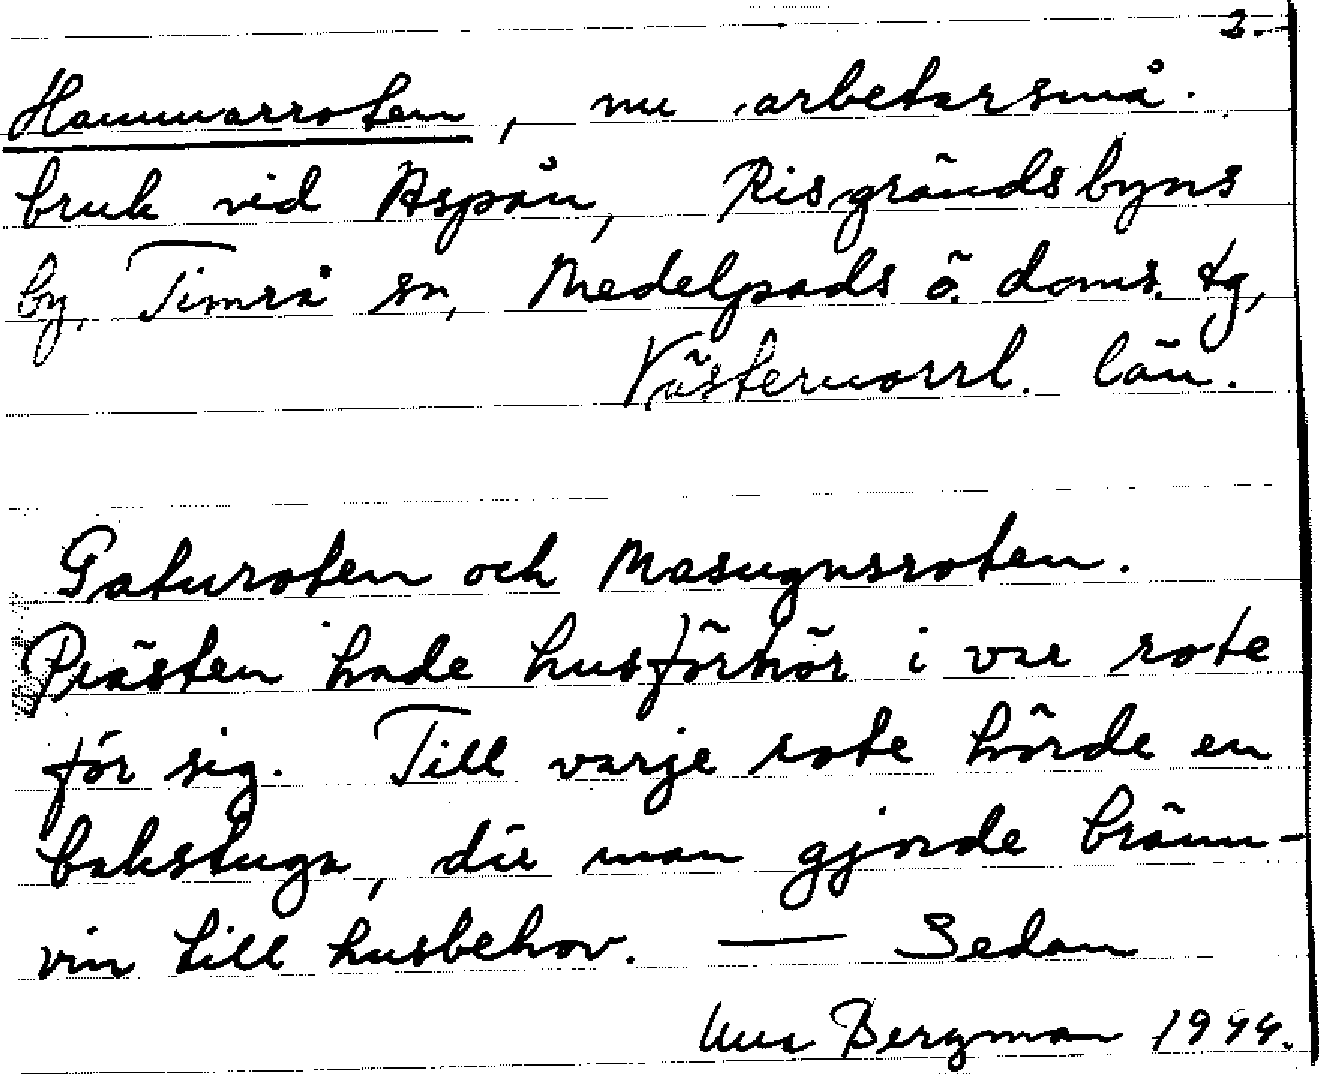 2.
Hammarroten, nu arbetarsmå-
bruk vid Aspån, Risgrändsbyns
by, Timrå sn, Medelpads ö. doms. tg,
Västernorrl. län.
Gaturoten och Masugnsroten.
Prästen hade husförhör i var rote
för sig. Till varje rote hörde en
bakstuga, där man gjorde bränn-
vin till husbehov. — Sedan
Bergman 1944.